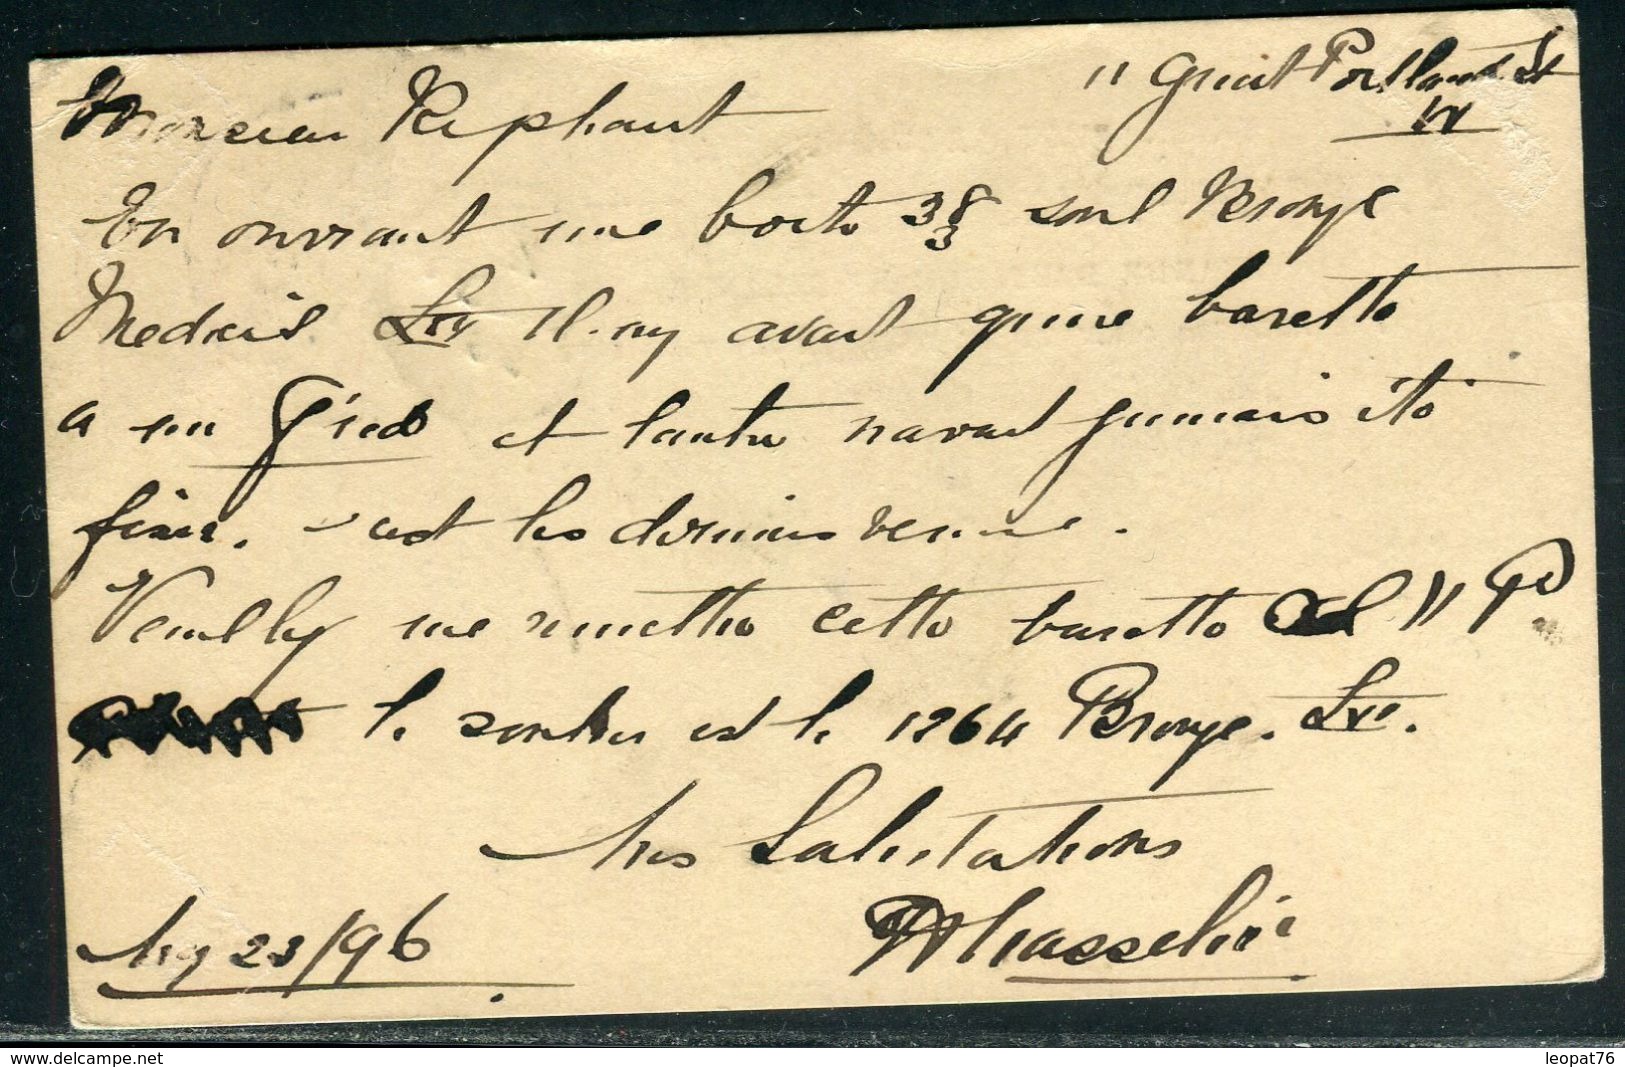 11 Great Portland St
W
Monsieur Riphaut
En ouvrant une boite 38/3 soul Bronze
Medail Lxv Il ny avait qu'une baretto
a un Pied et lautre navait jumais ito
fixer. c'est les dernieres venue.
Veuilley me remettre cetto baretto 11 P
le soulier est le 1264 Bronze. Lxv.
Mes Salutations
My 23/96
leopat76